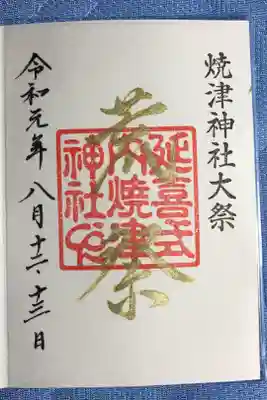 焼津神社大祭
荒祭
延喜式
内焼津
神社之印
令和元年八月十二、十三日